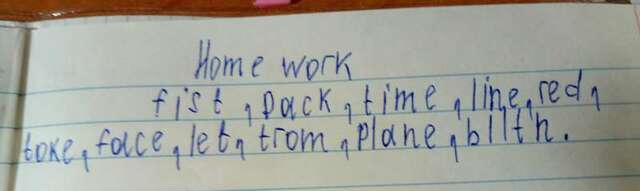 Home work
fist, pack, time, line, red,
toke, face, let, trom, plane, blltn.